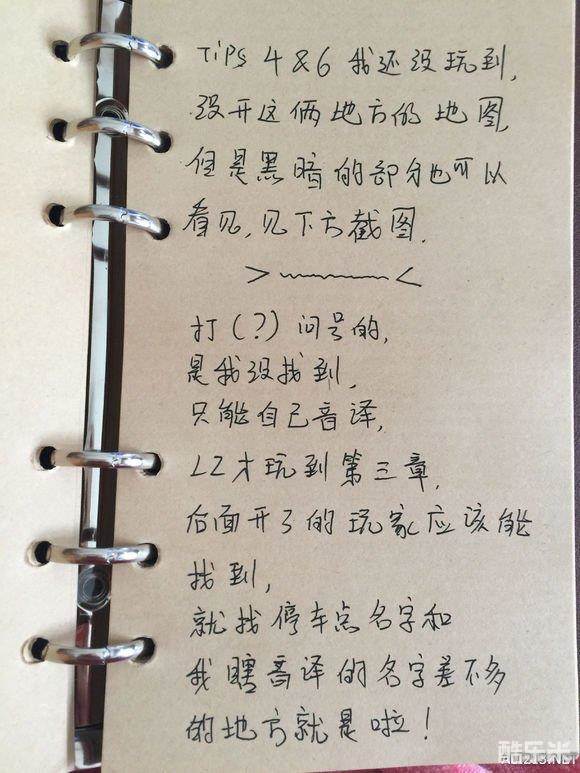 Tips 4&6 我还没玩到,
没开这俩地方的地图,
但是黑暗的部分也可以
看见,见下方截图.
打(?)问号的,
是我没找到,
只能自己音译,
LZ才玩到第三章,
后面开了的玩家应该能
找到,
就找停车点名字和
我瞎音译的名字差不多
的地方就是啦!
酷乐米